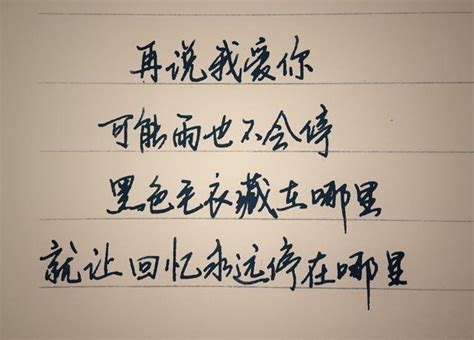 再说我爱你
可能雨也不会停
黑色毛衣藏在哪里
就让回忆永远停在哪里